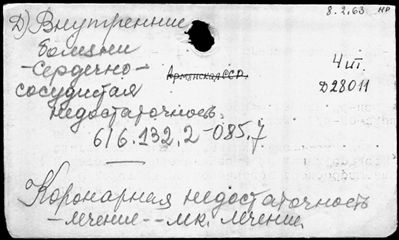 8.2.63 НР
Д) Внутренние
болезни
-Сердечно-
сосудистая
недостаточность.
Армянская ССР.
4 шт.
Д28011
616.132.2-085.7
Коронарная недостаточность
-лечение--мк. лечение.